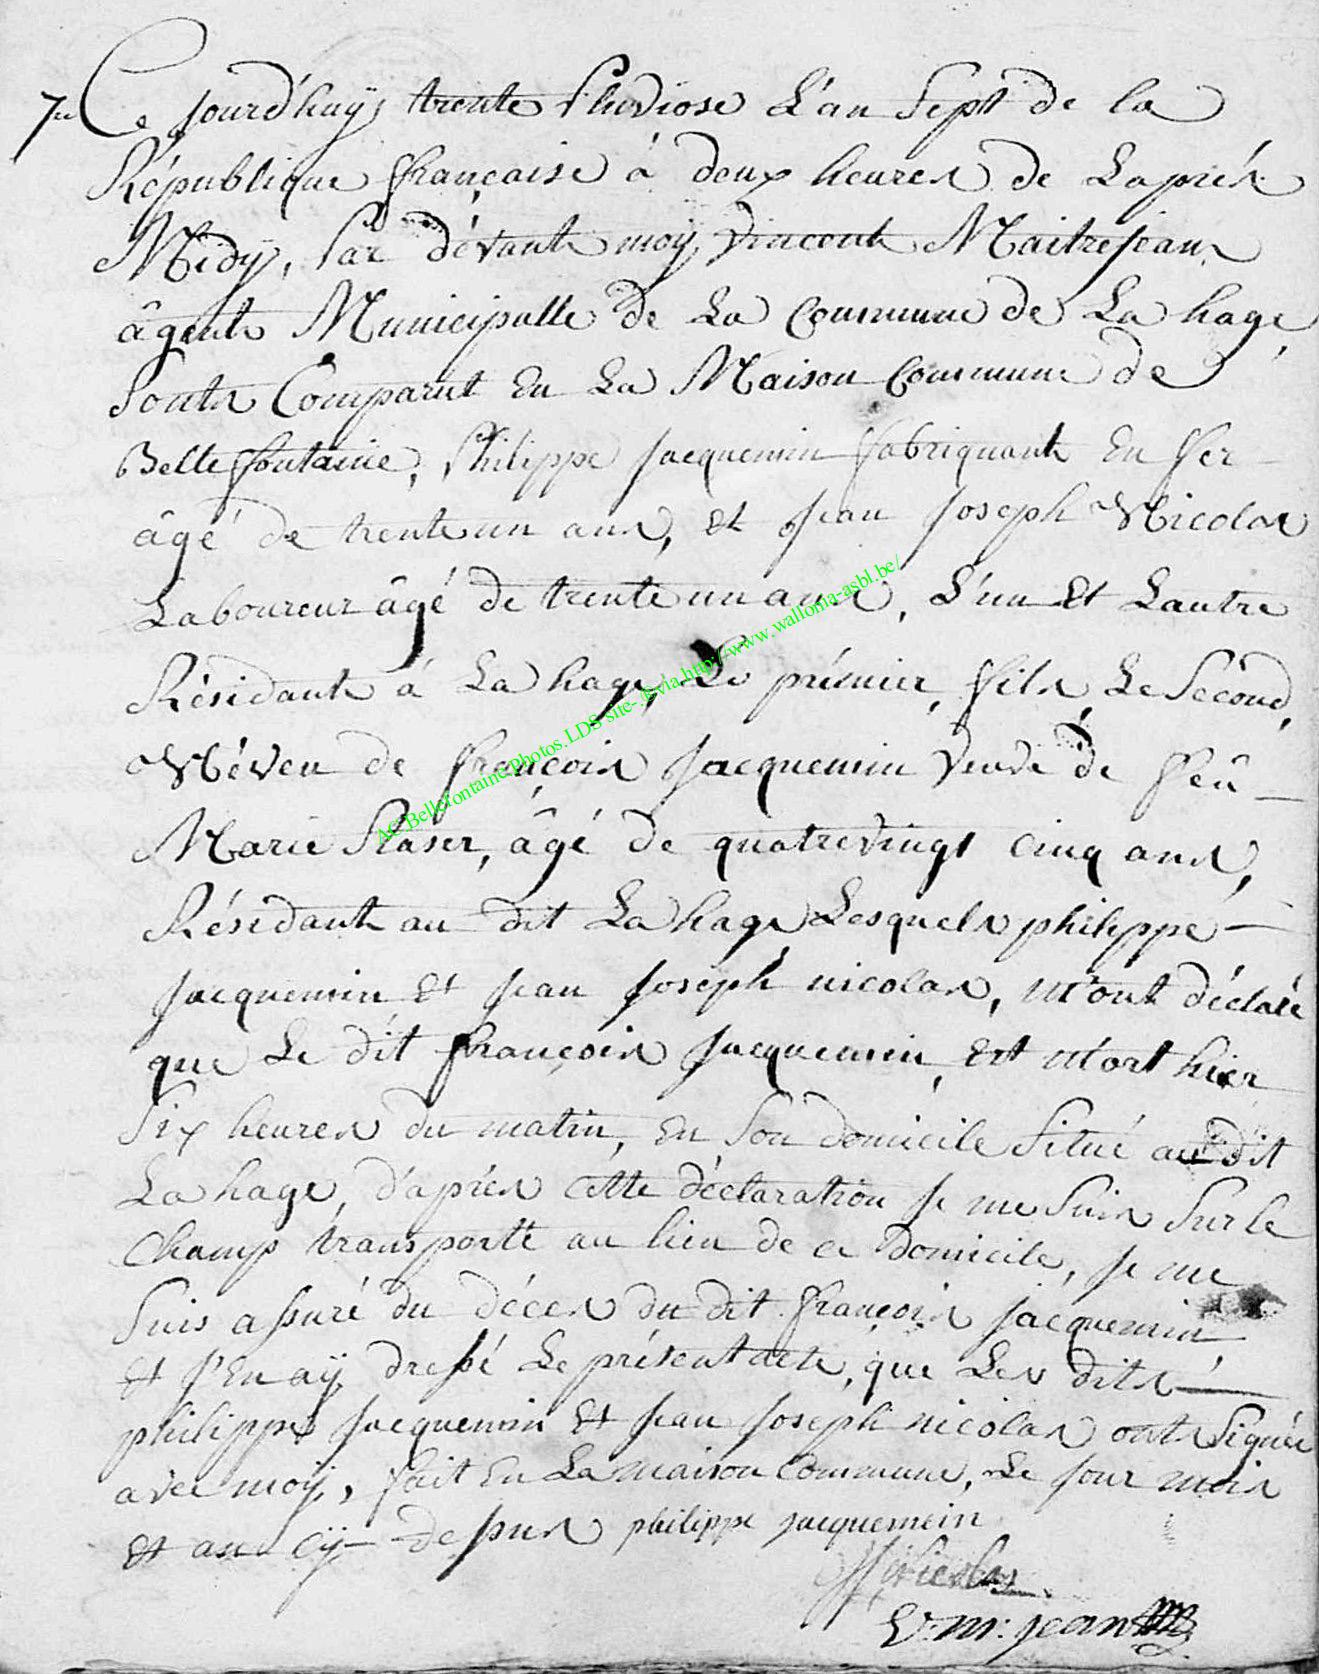 7e Ce jourd'huÿ trente Pluviose L'an Sept de la
République française à deux heures de Laprés
Midÿ, Par dévant moÿ Vincent Maitrejean
âgent Municipalle de La Commune de La hage
Sonts Comparut En La Maison Commune de
Bellefontaine, Philippe Jacquemin fabriquant En fer
âgé de trente un ans, Et Jean Joseph Nicolas
Laboureur âgé de trente un ans, L'un Et Lautre
Résidant à La hage, Le prémier, fils, Le Sécond,
Néveu de françois Jacquemin Veuve de feû
Marie Slaser, âgé de quatrevingt cinq ans,
Résidant au dit La hage Lesquels philippe
Jacquemin Et Jean Joseph nicolas, M'ont déclaré
que Le dit françois Jacquemin, Est Mort hier
Six heures du matin, En Son domicile Situé audit
La hage, d'aprés cette déclaration Je me Suis Sur le
Champ transporté au lieu de ce domicile, Je me
Suis assuré du déces du dit françois Jacquemin,
Et J'En aÿ dressé Le présent acte, que Les dits
philippe Jacquemin Et Jean Joseph nicolas onts Signés
avec moÿ, fait En La maison Commune, Le Jour mois
Et an Cÿ dessus philippe jacquemin
Nicolas
V: m: jean
AC-Bellefontaine-Photos.LDS-site-.&via.http://www.wallonia-asbl.be/